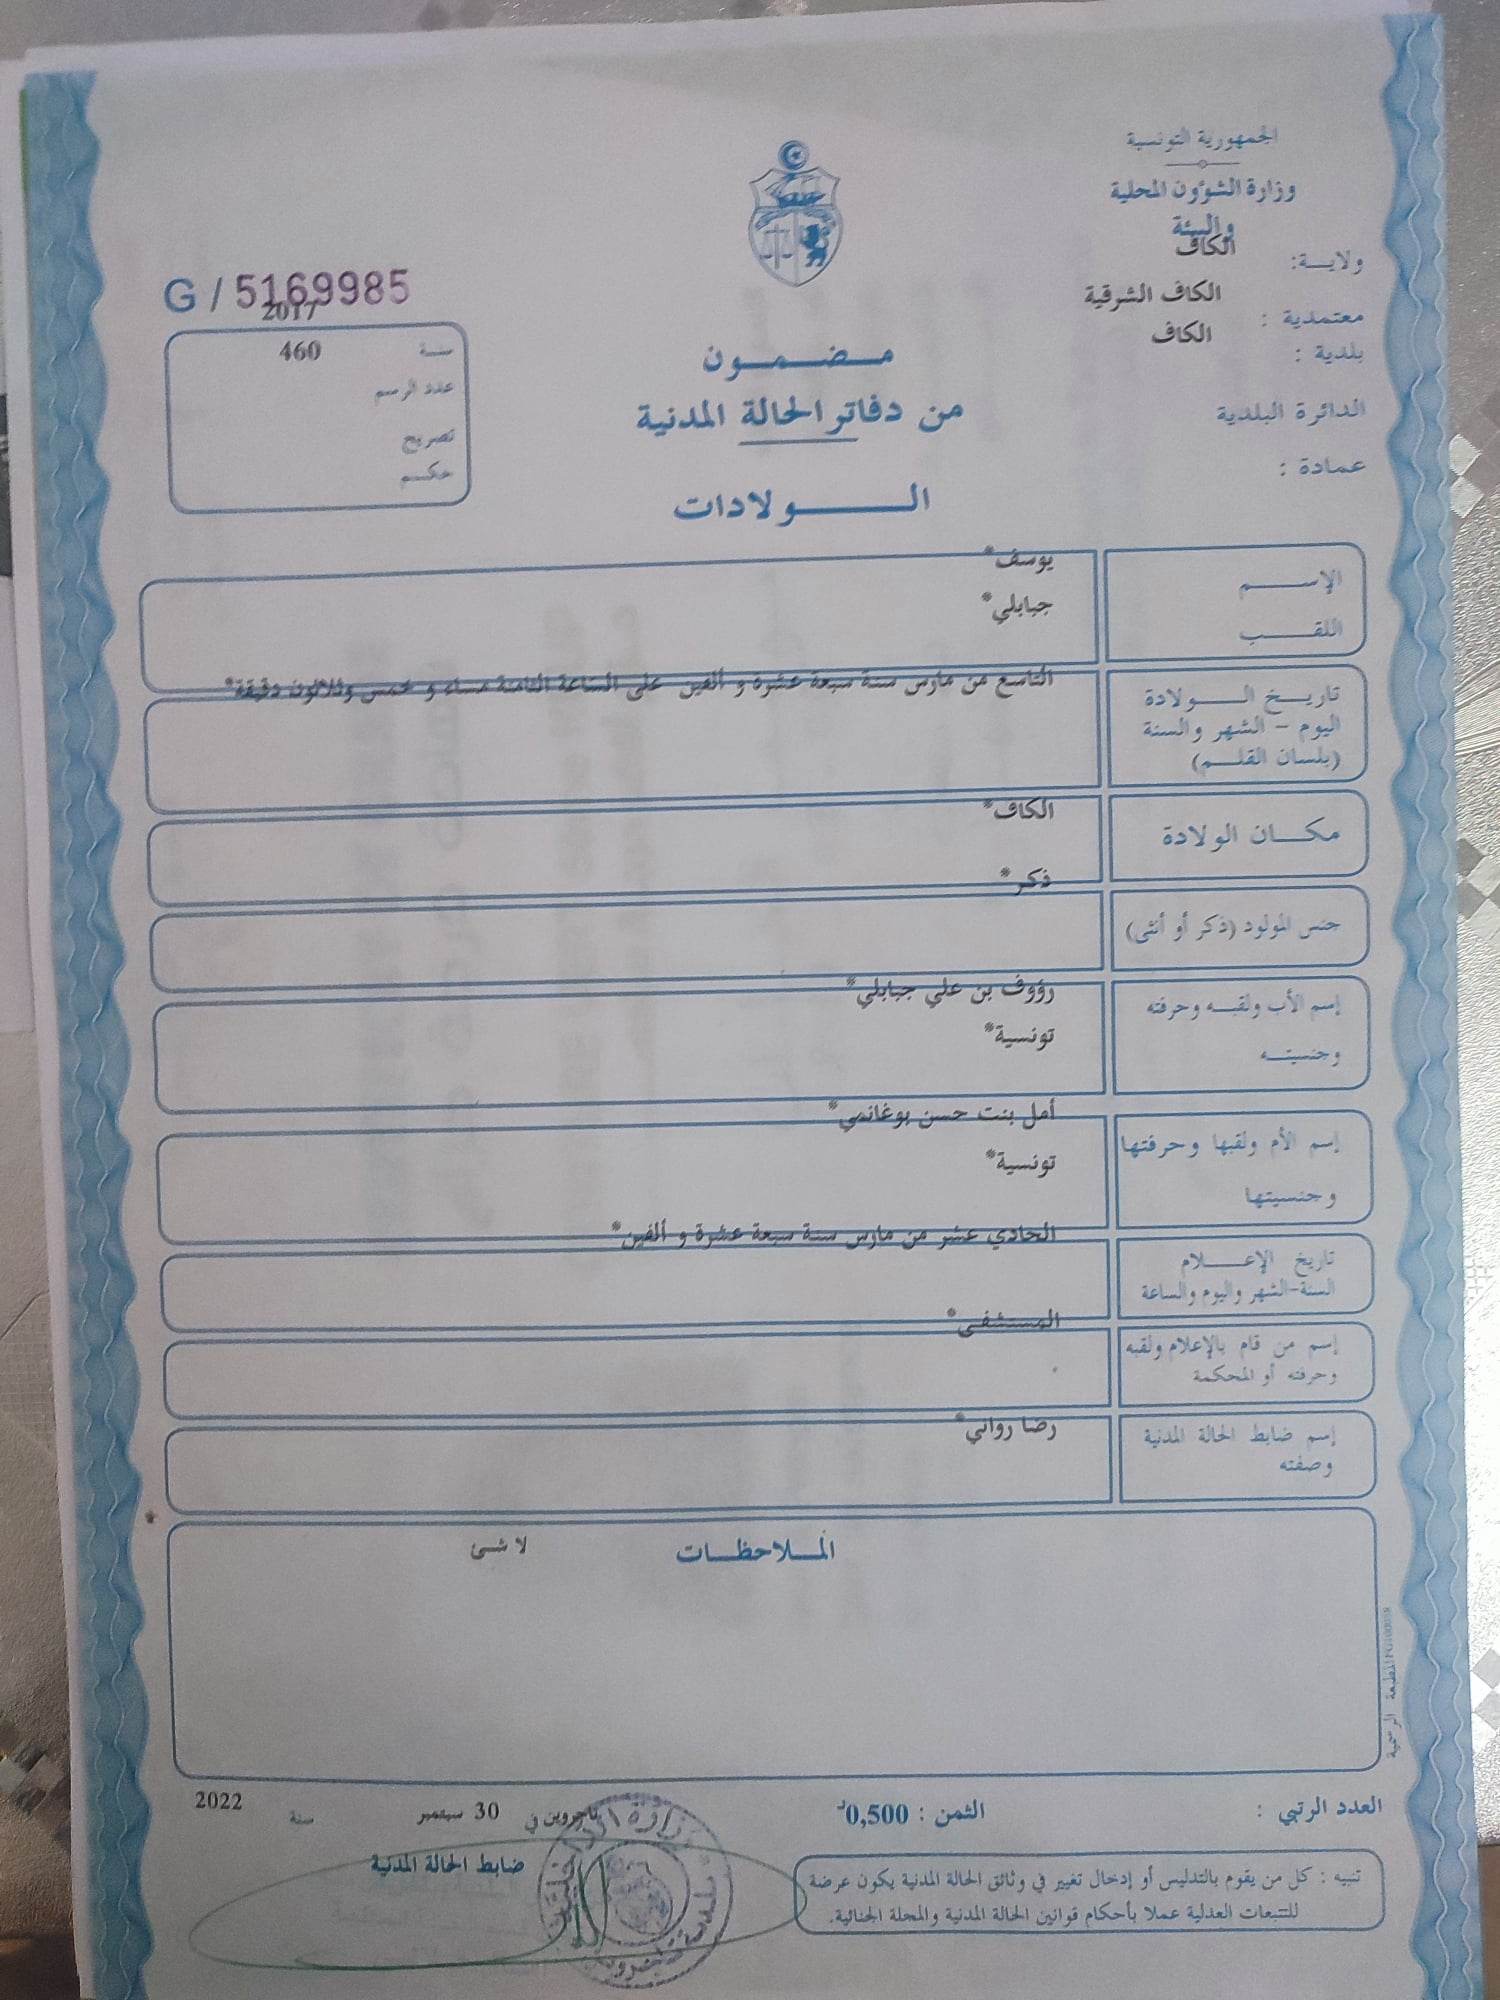 الجمهورية التونسية
وزارة الشؤون المحلية
والبيئة
ولايــة: الكاف
معتمدية : الكاف الشرقية
بلدية : الكاف
الدائرة البلدية
عمادة :
G / 5169985
سنة 2017
عدد الرسم 460
تصريح
حكم
مضمون
من دفاتر الحالة المدنية
الولادات
الإسم يوسف*
اللقب جبابلي*
تاريخ الولادة التاسع من مارس سنة سبعة عشرة و ألفين على الساعة الثامنة مساء و خمس وثلاثون دقيقة*
اليوم – الشهر والسنة
(بلسان القلم)
مكان الولادة الكاف*
جنس المولود (ذكر أو أنثى) ذكر*
إسم الأب ولقبه وحرفته رؤوف بن علي جبابلي*
وجنسيته تونسية*
إسم الأم ولقبها وحرفتها أمل بنت حسن بوغانمي*
وجنسيتها تونسية*
تاريخ الإعلام الحادي عشر من مارس سنة سبعة عشرة و ألفين*
السنة-الشهر واليوم والساعة
إسم من قام بالإعلام ولقبه المستشفى*
وحرفته أو المحكمة
إسم ضابط الحالة المدنية رضا رواني*
وصفته
الملاحظات لا شئ
المطبعة الرسمية
العدد الرتبي : الثمن : 0,500د تاجروين في 30 سبتمبر سنة 2022
ضابط الحالة المدنية
تنبيه : كل من يقوم بالتدليس أو إدخال تغيير في وثائق الحالة المدنية يكون عرضة
للتتبعات العدلية عملا بأحكام قوانين الحالة المدنية والمجلة الجنائية.